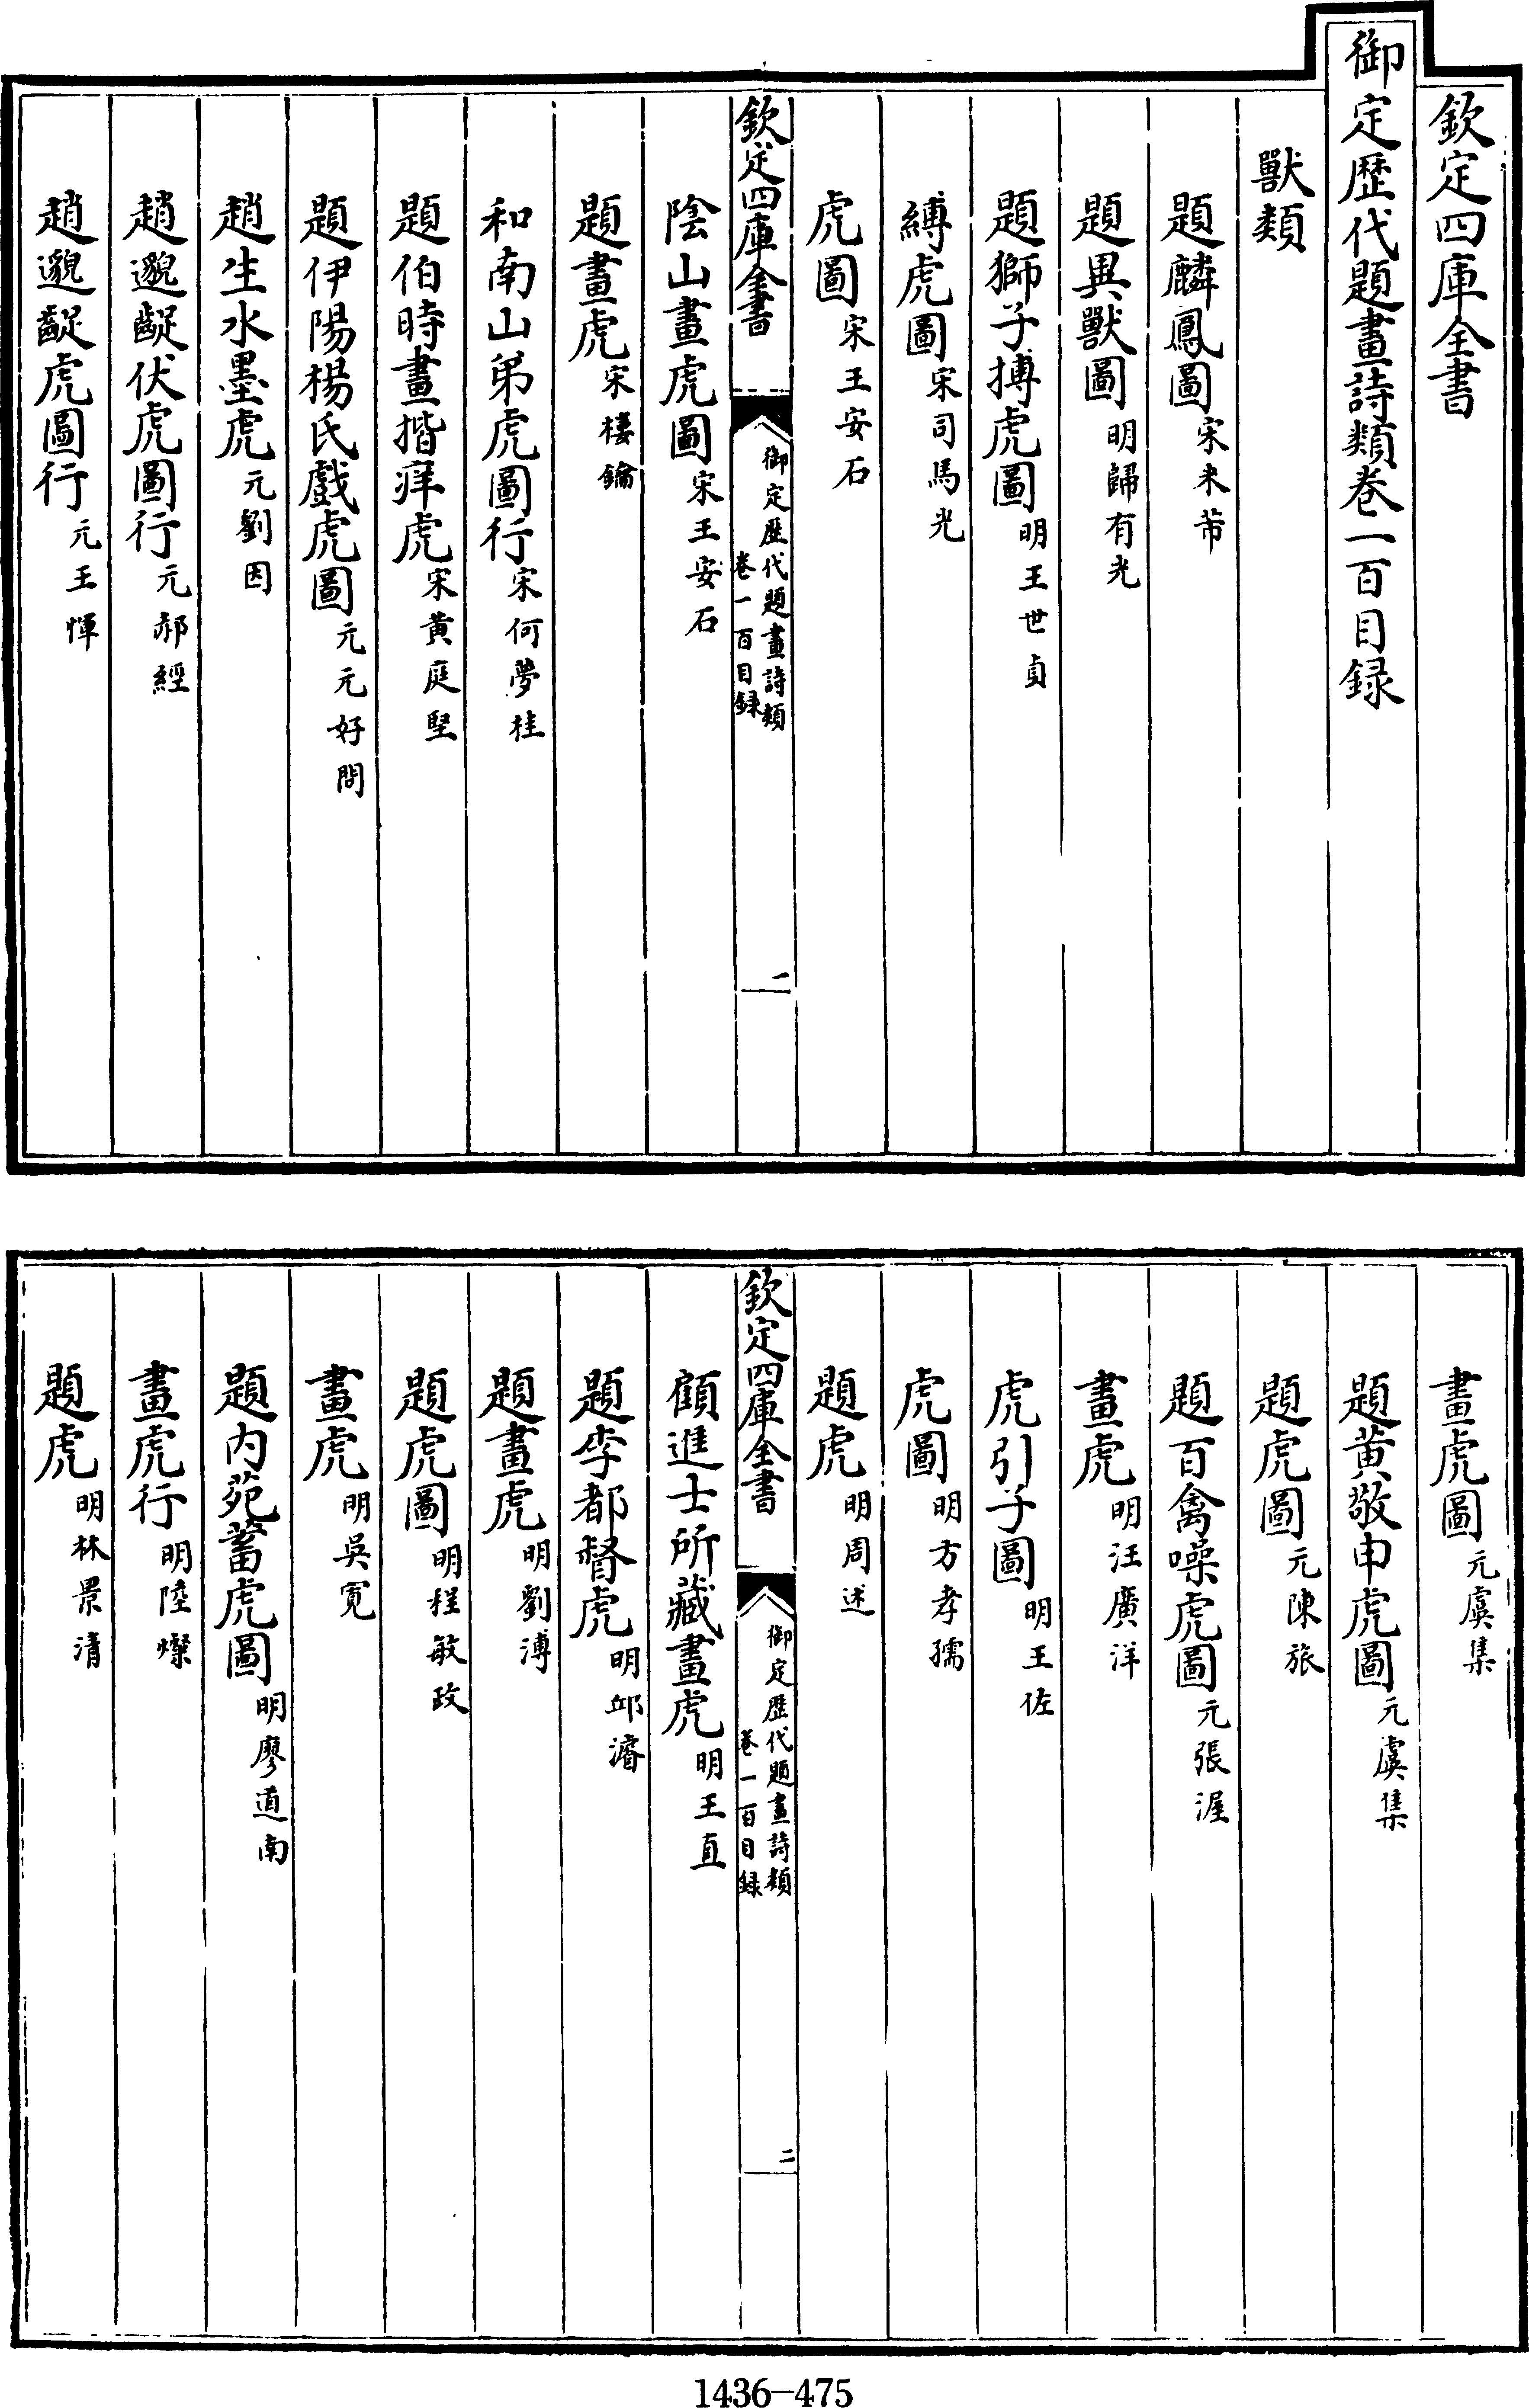 欽定四庫全書
御定歷代題畫詩類卷一百目録
獸類
題麟鳳圖宋米芾
題異獸圖明歸有光
題獅子搏虎圖明王世貞
縛虎圖宋司馬光
虎圖宋王安石
欽定四庫全書
御定歷代題畫詩類
卷一百目録
一
陰山畫虎圖宋王安石
題畫虎宋樓鑰
和南山弟虎圖行宋何夢桂
題伯時畫揩痒虎宋黄庭堅
題伊陽楊氏戲虎圖元元好問
趙生水墨虎元劉因
趙邈齪伏虎圖行元郝經
趙邈齪虎圖行元王惲
畫虎圖元虞集
題黄敬申虎圖元虞集
題虎圖元陳旅
題百禽噪虎圖元張渥
畫虎明汪廣洋
虎引子圖明王佐
虎圖明方孝孺
題虎明周述
欽定四庫全書
御定歷代題畫詩類
卷一百目録
二
顧進士所藏畫虎明王直
題李都督虎明邱濬
題畫虎明劉溥
題虎圖明程敏政
畫虎明吳寬
題内苑蓄虎圖明廖道南
畫虎行明陸燦
題虎明林景清
1436-475